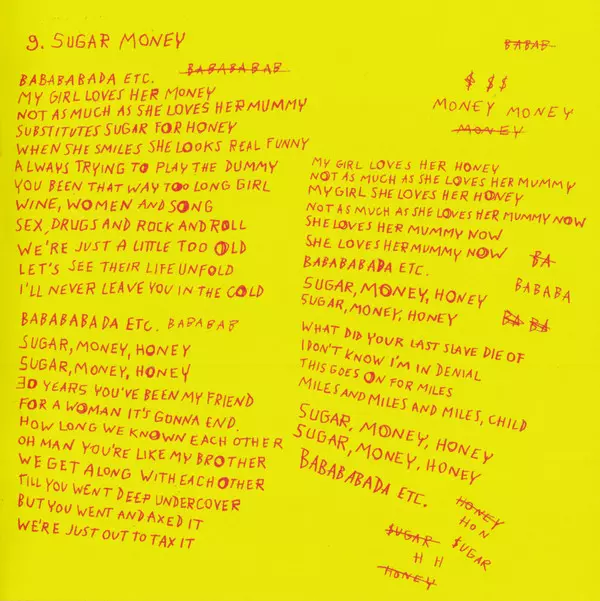 9. SUGAR MONEY
BABABABAB
BABABABADA ETC.
MY GIRL LOVES HER MONEY
NOT AS MUCH AS SHE LOVES HER MUMMY
SUBSTITUTES SUGAR FOR HONEY
WHEN SHE SMILES SHE LOOKS REAL FUNNY
ALWAYS TRYING TO PLAY THE DUMMY
YOU BEEN THAT WAY TOO LONG GIRL
WINE, WOMEN AND SONG
SEX, DRUGS AND ROCK AND ROLL
WE'RE JUST A LITTLE TOO OLD
LET'S SEE THEIR LIFE UNFOLD
I'LL NEVER LEAVE YOU IN THE COLD
BABABABADA ETC. BABABAB
SUGAR, MONEY, HONEY
SUGAR, MONEY, HONEY
30 YEARS YOU'VE BEEN MY FRIEND
FOR A WOMAN IT'S GONNA END.
HOW LONG WE KNOWN EACH OTHER
OH MAN YOU'RE LIKE MY BROTHER
WE GET ALONG WITH EACH OTHER
TILL YOU WENT DEEP UNDERCOVER
BUT YOU WENT AND AXED IT
WE'RE JUST OUT TO TAX IT
BABAB
$ $$
MONEY MONEY
MONEY
MY GIRL LOVES HER HONEY
NOT AS MUCH AS SHE LOVES HER MUMMY
MY GIRL SHE LOVES HER HONEY
NOT AS MUCH AS SHE LOVES HER MUMMY NOW
SHE LOVES HER MUMMY NOW
SHE LOVES HER MUMMY NOW
BA
BABABABADA ETC.
BABABA
SUGAR, MONEY, HONEY
SUGAR, MONEY, HONEY
BA BA
WHAT DID YOUR LAST SLAVE DIE OF
I DON'T KNOW I'M IN DENIAL
THIS GOES ON FOR MILES
MILES AND MILES AND MILES, CHILD
SUGAR, MONEY, HONEY
SUGAR, MONEY, HONEY
BABABABADA ETC.
HONEY
HON
$UGAR
$UGAR
H H
HONEY